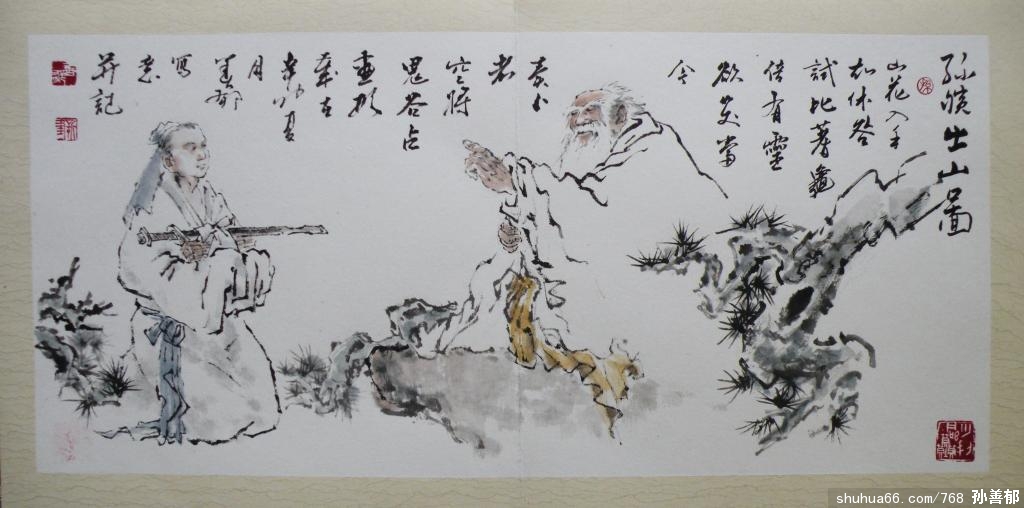 孫臏出山圖
山花入手
知休咎
試比蓍龜
倍有靈
卻笑當
今
賣卜
者
空將
鬼谷占
畫形
歲在
辛卯夏
月
善郁
寫
意
并記
shuhua66.com/768 孙善郁